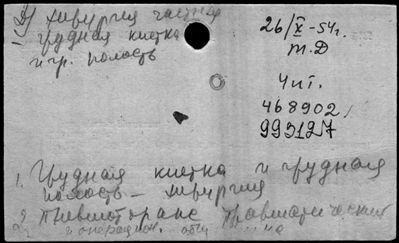 д) хирургия частная
грудная клетка
и гр. полость
26/X-54г.
т.Д
Чит.
468902,
993127
1. Грудная клетка и грудная
полость – хирургия
2. Пневмоторакс травматический
и операцион.